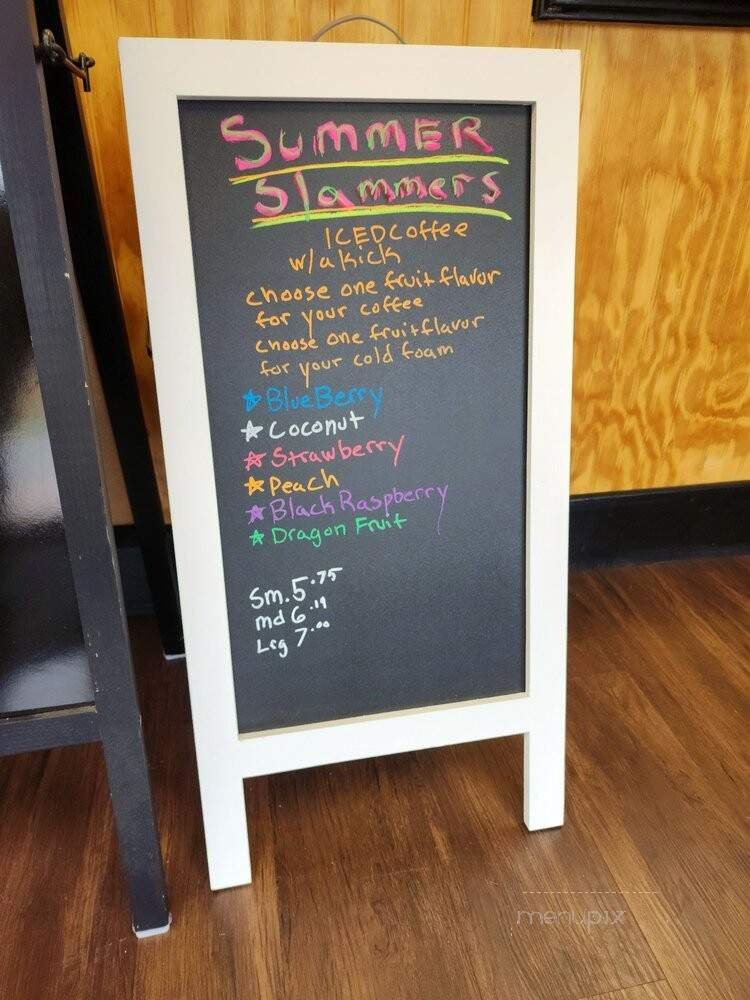 SUMMER
Slammers
ICED Coffee
w/ a kick
choose one fruit flavor
for your coffee
choose one fruit flavor
for your cold foam
☆ BlueBerry
☆ Coconut
☆ Strawberry
☆ Peach
☆ Black Raspberry
☆ Dragon Fruit
Sm. 5.75
md 6.19
Lrg 7.00
menupix